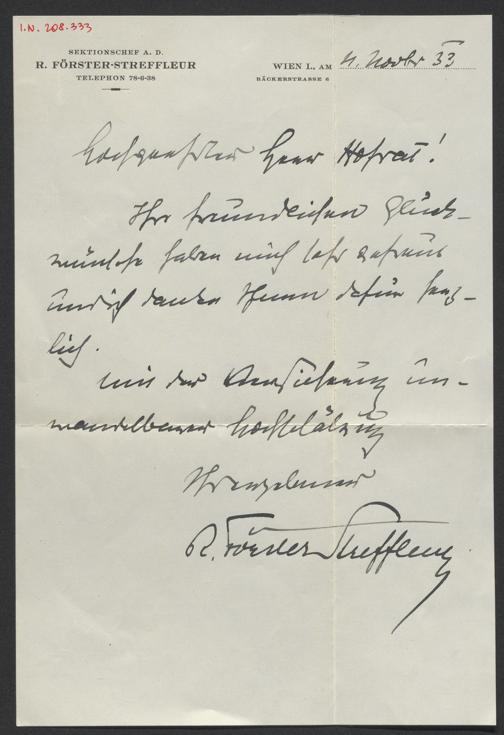 I.N. 208.333
SEKTIONSCHEF A. D.
R. FÖRSTER-STREFFLEUR
TELEPHON 78-6-38
WIEN I., AM 4. Novbr 33
BÄCKERSTRASSE 6
Hochgeehrter Herr Hofrat!
Ihre freundlichen Glück-
wünsche haben mich sehr gefreut
und ich danke Ihnen dafür herz-
lich.
Mit der Versicherung un-
wandelbarer Hochschätzung
Ihr ergebener
R. Förster Streffleur